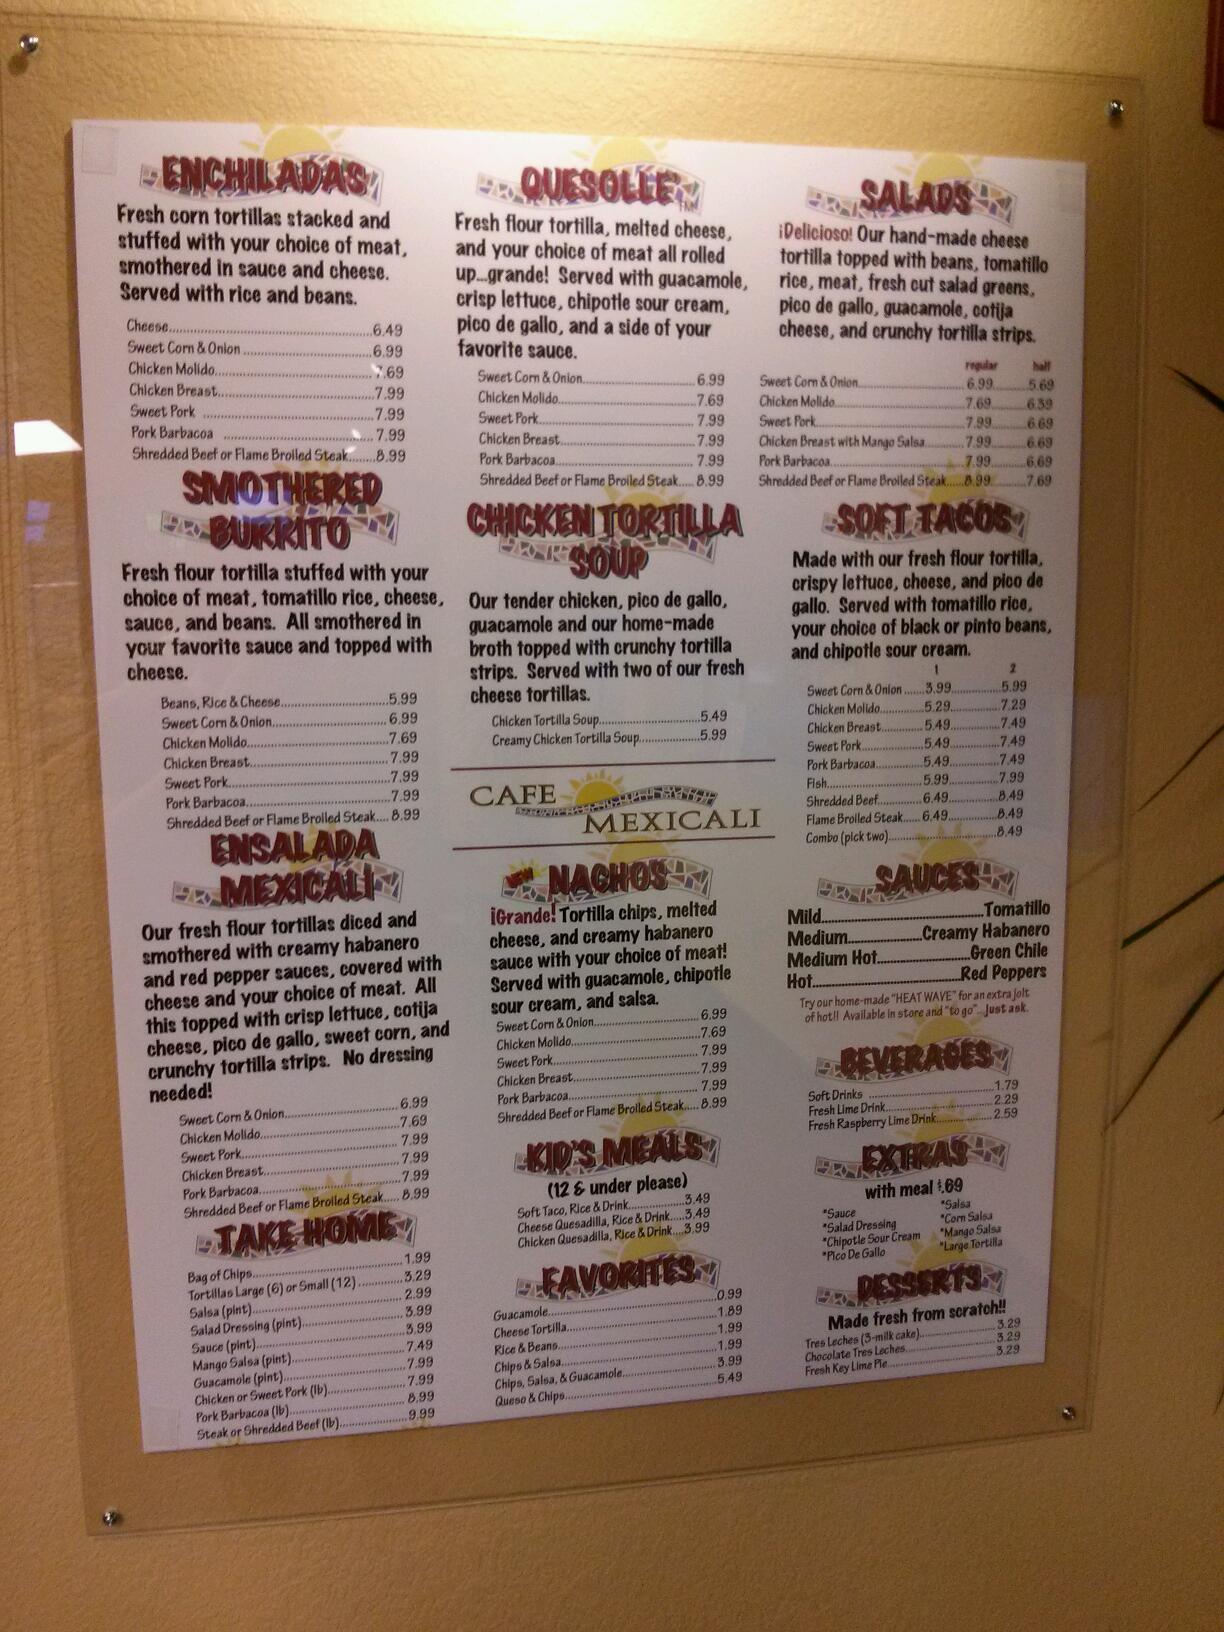 ENCHILADAS
Fresh corn tortillas stacked and
stuffed with your choice of meat,
smothered in sauce and cheese.
Served with rice and beans.
Cheese 6.49
Sweet Corn & Onion 6.99
Chicken Molido 7.69
Chicken Breast 7.99
Sweet Pork 7.99
Pork Barbacoa 7.99
Shredded Beef or Flame Broiled Steak 8.99
SMOTHERED
BURRITO
Fresh flour tortilla stuffed with your
choice of meat, tomatillo rice, cheese,
sauce, and beans. All smothered in
your favorite sauce and topped with
cheese.
Beans, Rice & Cheese 5.99
Sweet Corn & Onion 6.99
Chicken Molido 7.69
Chicken Breast 7.99
Sweet Pork 7.99
Pork Barbacoa 7.99
Shredded Beef or Flame Broiled Steak 8.99
ENSALADA
MEXICALI
Our fresh flour tortillas diced and
smothered with creamy habanero
and red pepper sauces, covered with
cheese and your choice of meat. All
this topped with crisp lettuce, cotija
cheese, pico de gallo, sweet corn, and
crunchy tortilla strips. No dressing
needed!
Sweet Corn & Onion 6.99
Chicken Molido 7.69
Sweet Pork 7.99
Chicken Breast 7.99
Pork Barbacoa 7.99
Shredded Beef or Flame Broiled Steak 8.99
TAKE HOME
Bag of Chips 1.99
Tortillas Large (6) or Small (12) 3.29
Salsa (pint) 2.99
Salad Dressing (pint) 3.99
Sauce (pint) 3.99
Mango Salsa (pint) 7.49
Guacamole (pint) 7.99
Chicken or Sweet Pork (lb) 7.99
Pork Barbacoa (lb) 8.99
Steak or Shredded Beef (lb) 9.99
QUESOLLE' TM
Fresh flour tortilla, melted cheese,
and your choice of meat all rolled
up...grande! Served with guacamole,
crisp lettuce, chipotle sour cream,
pico de gallo, and a side of your
favorite sauce.
Sweet Corn & Onion 6.99
Chicken Molido 7.69
Sweet Pork 7.99
Chicken Breast 7.99
Pork Barbacoa 7.99
Shredded Beef or Flame Broiled Steak 8.99
CHICKEN TORTILLA
SOUP
Our tender chicken, pico de gallo,
guacamole and our home-made
broth topped with crunchy tortilla
strips. Served with two of our fresh
cheese tortillas.
Chicken Tortilla Soup 5.49
Creamy Chicken Tortilla Soup 5.99
CAFE
MEXICALI
NEW NACHOS
¡Grande! Tortilla chips, melted
cheese, and creamy habanero
sauce with your choice of meat!
Served with guacamole, chipotle
sour cream, and salsa.
Sweet Corn & Onion 6.99
Chicken Molido 7.69
Sweet Pork 7.99
Chicken Breast 7.99
Pork Barbacoa 7.99
Shredded Beef or Flame Broiled Steak 8.99
KID'S MEALS
(12 & under please)
Soft Taco, Rice & Drink 3.49
Cheese Quesadilla, Rice & Drink 3.49
Chicken Quesadilla, Rice & Drink 3.99
FAVORITES
Guacamole 0.99
Cheese Tortilla 1.89
Rice & Beans 1.99
Chips & Salsa 1.99
Chips, Salsa, & Guacamole 3.99
Queso & Chips 5.49
SALADS
¡Delicioso! Our hand-made cheese
tortilla topped with beans, tomatillo
rice, meat, fresh cut salad greens,
pico de gallo, guacamole, cotija
cheese, and crunchy tortilla strips.
regular half
Sweet Corn & Onion 6.99 5.69
Chicken Molido 7.69 6.39
Sweet Pork 7.99 6.69
Chicken Breast with Mango Salsa 7.99 6.69
Pork Barbacoa 7.99 6.69
Shredded Beef or Flame Broiled Steak 8.99 7.69
SOFT TACOS
Made with our fresh flour tortilla,
crispy lettuce, cheese, and pico de
gallo. Served with tomatillo rice,
your choice of black or pinto beans,
and chipotle sour cream.
1 2
Sweet Corn & Onion 3.99 5.99
Chicken Molido 5.29 7.29
Chicken Breast 5.49 7.49
Sweet Pork 5.49 7.49
Pork Barbacoa 5.49 7.49
Fish 5.99 7.99
Shredded Beef 6.49 8.49
Flame Broiled Steak 6.49 8.49
Combo (pick two) 8.49
SAUCES
Mild Tomatillo
Medium Creamy Habanero
Medium Hot Green Chile
Hot Red Peppers
Try our home-made "HEAT WAVE" for an extra jolt
of hot!! Available in store and "to go"... Just ask.
BEVERAGES
Soft Drinks 1.79
Fresh Lime Drink 2.29
Fresh Raspberry Lime Drink 2.59
EXTRAS
with meal $.69
*Sauce *Salsa
*Salad Dressing *Corn Salsa
*Chipotle Sour Cream *Mango Salsa
*Pico De Gallo *Large Tortilla
DESSERTS
Made fresh from scratch!!
Tres Leches (3-milk cake) 3.29
Chocolate Tres Leches 3.29
Fresh Key Lime Pie 3.29